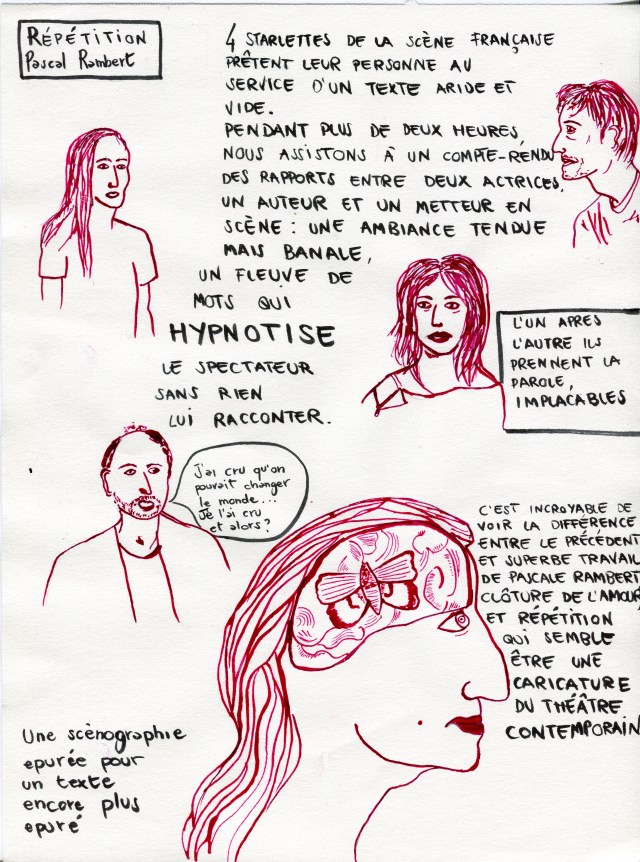 RÉPÉTITION
Pascal Rambert
4 STARLETTES DE LA SCÈNE FRANÇAISE
PRÊTENT LEUR PERSONNE AU
SERVICE D'UN TEXTE ARIDE ET
VIDE.
PENDANT PLUS DE DEUX HEURES,
NOUS ASSISTONS À UN COMPTE-RENDU
DES RAPPORTS ENTRE DEUX ACTRICES,
UN AUTEUR ET UN METTEUR EN
SCÈNE : UNE AMBIANCE TENDUE
MAIS BANALE,
UN FLEUVE DE
MOTS QUI
HYPNOTISE
LE SPECTATEUR
SANS RIEN
LUI RACCONTER.
L'UN APRES
L'AUTRE ILS
PRENNENT LA
PAROLE,
IMPLACABLES
J'ai cru qu'on
pouvait changer
le monde...
Je l'ai cru
et alors?
C'EST INCROYABLE DE
VOIR LA DIFFÉRENCE
ENTRE LE PRÉCÉDENT
ET SUPERBE TRAVAIL
DE PASCALE RAMBERT
CLÔTURE DE L'AMOUR
ET RÉPÉTITION
QUI SEMBLE
ÊTRE UNE
CARICATURE
DU THÉÂTRE
CONTEMPORAIN
Une scènographie
epurée pour
un texte
encore plus
epuré